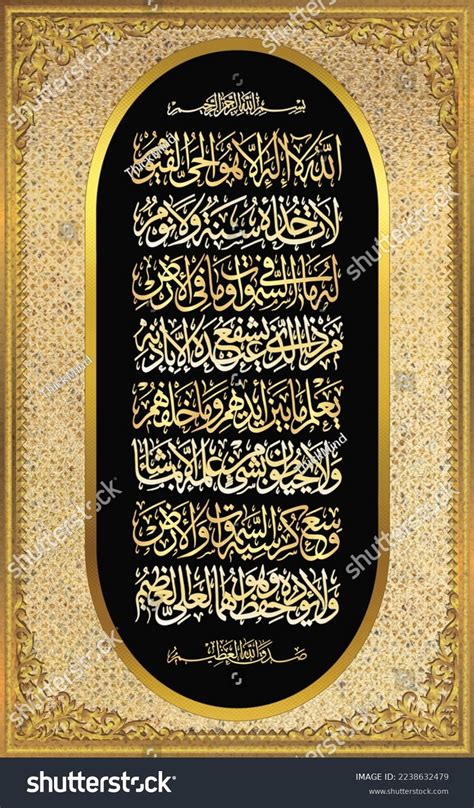 بسم الله الرحمن الرحيم
الله لا إله إلا هو الحي القيوم
لا تأخذه سنة ولا نوم
له ما في السموات وما في الأرض
من ذا الذي يشفع عنده إلا بإذنه
يعلم ما بين أيديهم وما خلفهم
ولا يحيطون بشيء من علمه إلا بما شاء
وسع كرسيه السموات والأرض
ولا يؤوده حفظهما وهو العلي العظيم
صدق الله العظيم
shutterstock
Thicklund
shutterstock
IMAGE ID: 2238632479
www.shutterstock.com